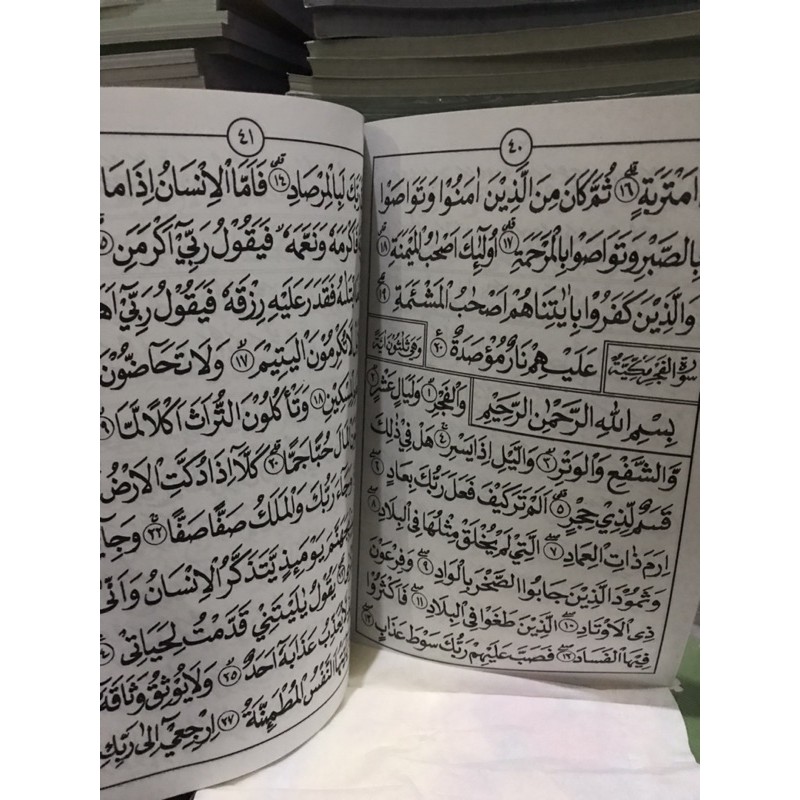 ٤٠
مَتْرَبَةٍ ١٦ ثُمَّ كَانَ مِنَ الَّذِيْنَ اٰمَنُوْا وَتَوَاصَوْا
بِالصَّبْرِ وَتَوَاصَوْا بِالْمَرْحَمَةِ ١٧ اُولٰٓئِكَ اَصْحٰبُ الْمَيْمَنَةِ ١٨
وَالَّذِيْنَ كَفَرُوْا بِاٰيٰتِنَا هُمْ اَصْحٰبُ الْمَشْـَٔمَةِ ١٩
عَلَيْهِمْ نَارٌ مُّؤْصَدَةٌ ٢٠
سورة الفجر مكية وهي ثلثون اية
بِسْمِ اللّٰهِ الرَّحْمٰنِ الرَّحِيْمِ
وَالْفَجْرِ ١ وَلَيَالٍ عَشْرٍ ٢
وَّالشَّفْعِ وَالْوَتْرِ ٣ وَالَّيْلِ اِذَا يَسْرِ ٤ هَلْ فِيْ ذٰلِكَ
قَسَمٌ لِّذِيْ حِجْرٍ ٥ اَلَمْ تَرَ كَيْفَ فَعَلَ رَبُّكَ بِعَادٍ ٦
اِرَمَ ذَاتِ الْعِمَادِ ٧ الَّتِيْ لَمْ يُخْلَقْ مِثْلُهَا فِى الْبِلَادِ ٨
وَثَمُوْدَ الَّذِيْنَ جَابُوا الصَّخْرَ بِالْوَادِ ٩ وَفِرْعَوْنَ
ذِى الْاَوْتَادِ ١٠ الَّذِيْنَ طَغَوْا فِى الْبِلَادِ ١١ فَاَكْثَرُوْا
فِيْهَا الْفَسَادَ ١٢ فَصَبَّ عَلَيْهِمْ رَبُّكَ سَوْطَ عَذَابٍ ١٣
٤١
رَبَّكَ لَبِالْمِرْصَادِ ١٤ فَاَمَّا الْاِنْسَانُ اِذَا مَا
فَاَكْرَمَهٗ وَنَعَّمَهٗ فَيَقُوْلُ رَبِّيْٓ اَكْرَمَنِ
ابْتَلٰىهُ فَقَدَرَ عَلَيْهِ رِزْقَهٗ فَيَقُوْلُ رَبِّيْٓ
لَا تُكْرِمُوْنَ الْيَتِيْمَ ١٧ وَلَا تَحَاضُّوْنَ
الْمِسْكِيْنِ ١٨ وَتَأْكُلُوْنَ التُّرَاثَ اَكْلًا لَّمًّا
الْمَالَ حُبًّا جَمًّا ٢٠ كَلَّآ اِذَا دُكَّتِ الْاَرْضُ
وَجَآءَ رَبُّكَ وَالْمَلَكُ صَفًّا صَفًّا ٢٢
بِجَهَنَّمَ يَوْمَئِذٍ يَّتَذَكَّرُ الْاِنْسَانُ وَاَنّٰى
يَقُوْلُ يٰلَيْتَنِيْ قَدَّمْتُ لِحَيَاتِيْ
لَا يُعَذِّبُ عَذَابَهٗٓ اَحَدٌ ٢٥ وَلَا يُوْثِقُ وَثَاقَهٗٓ
النَّفْسُ الْمُطْمَئِنَّةُ ٢٧ ارْجِعِيْٓ اِلٰى رَبِّكِ